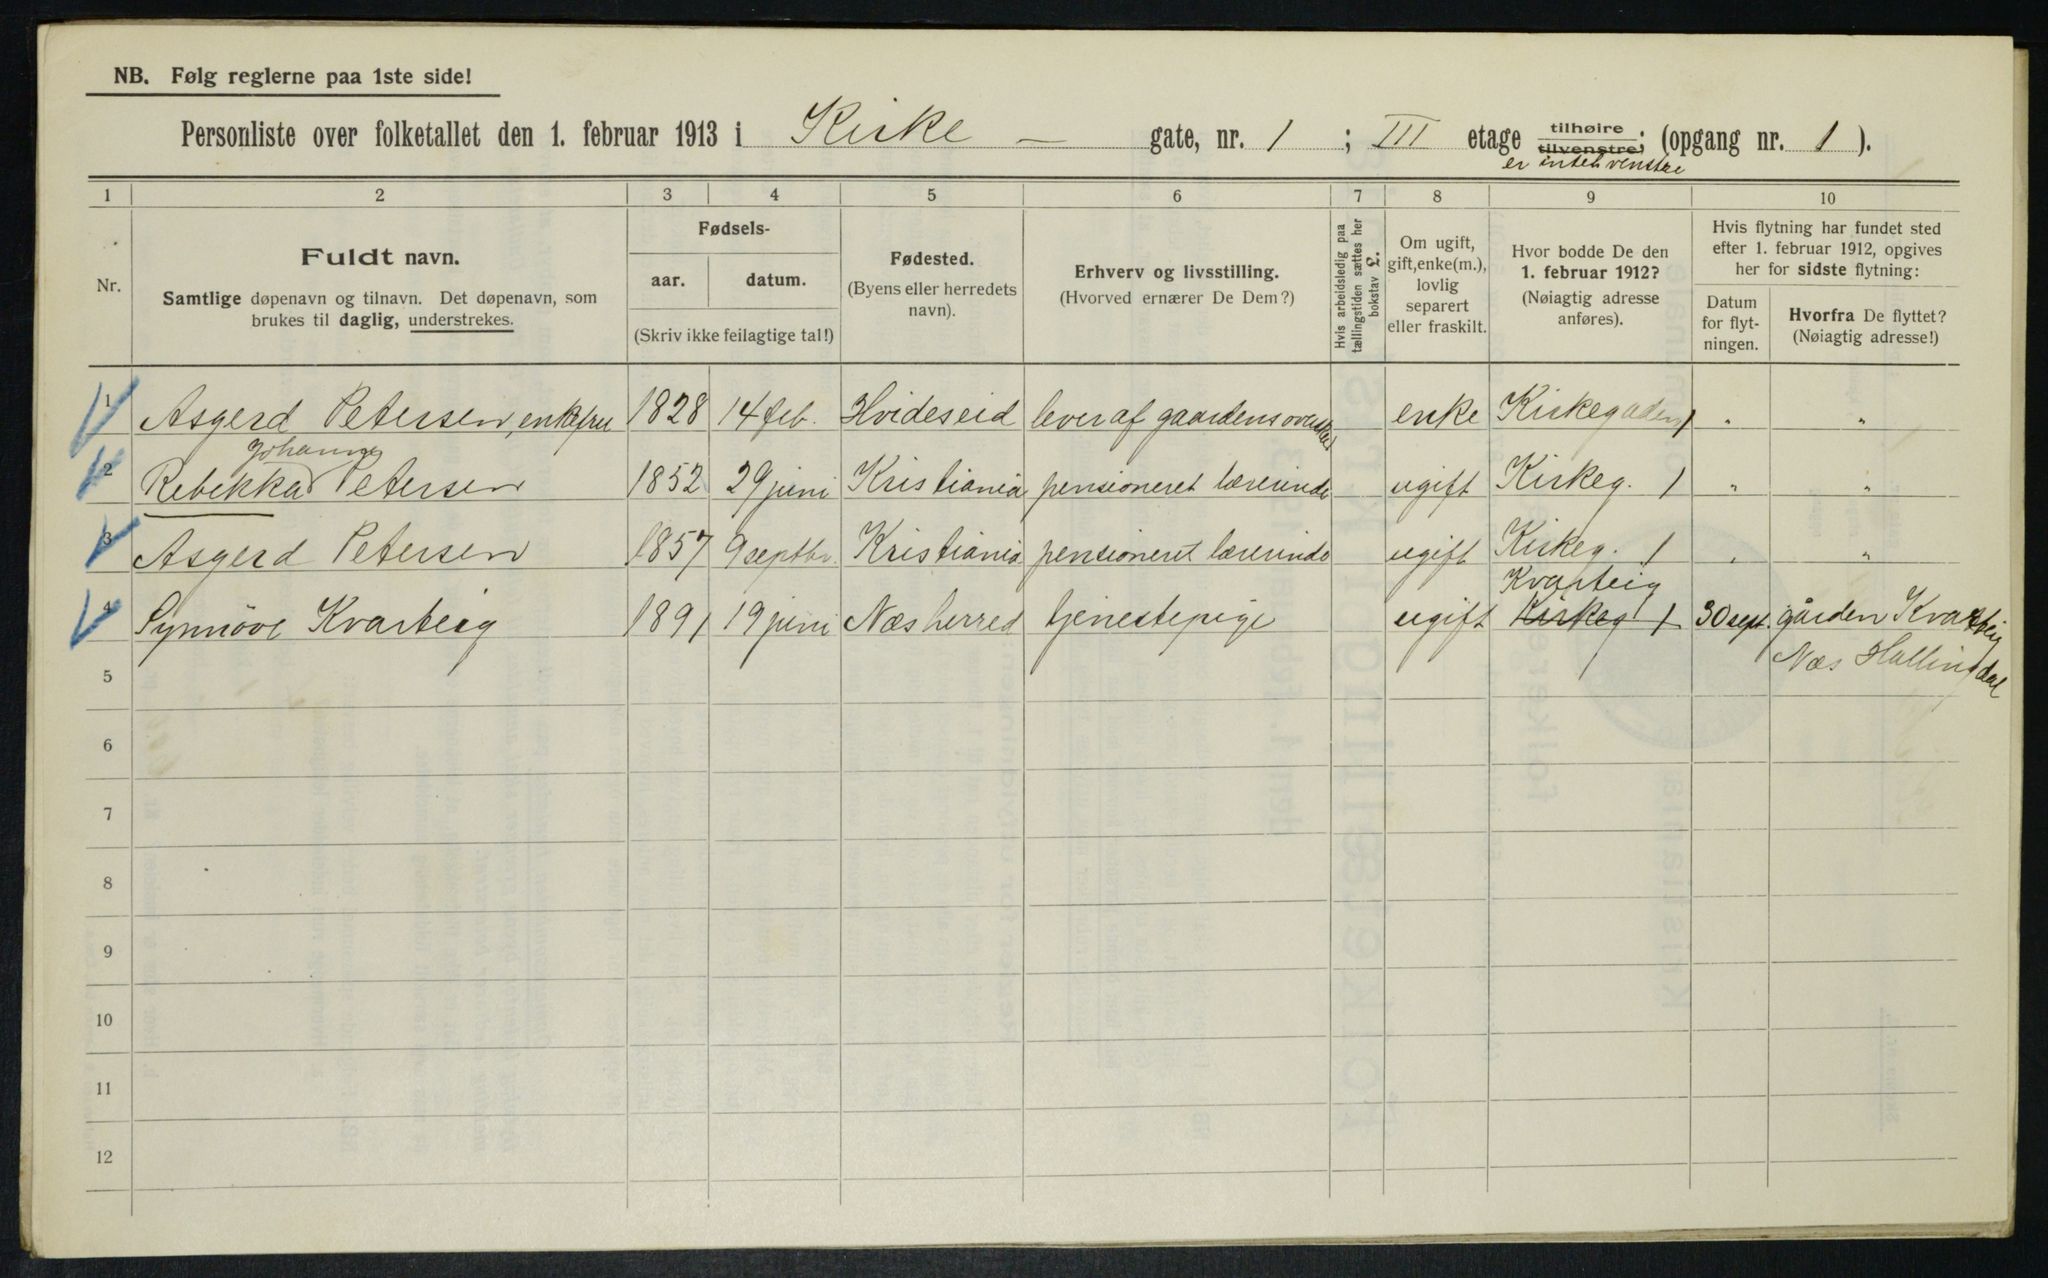 NB. Følg reglerne paa 1ste side!
Personliste over folketallet den 1. februar 1913 i Kirke — gate, nr. 1 ; III etage tilhøire tilvenstre; (opgang nr. 1).
er intet venstre
1 2 3 4 5 6 7 8 9 10
Nr.
Fuldt navn.
Samtlige døpenavn og tilnavn. Det døpenavn, som
brukes til daglig, understrekes.
Fødsels-
aar. datum.
(Skriv ikke feilagtige tal!)
Fødested.
(Byens eller herredets
navn).
Erhverv og livsstilling.
(Hvorved ernærer De Dem?)
Hvis arbeidsledig paa
tællingstiden sættes her
bokstav L.
Om ugift,
gift, enke(m.),
lovlig
separert
eller fraskilt.
Hvor bodde De den
1. februar 1912?
(Nøiagtig adresse
anføres).
Hvis flytning har fundet sted
efter 1. februar 1912, opgives
her for sidste flytning:
Datum
for flyt-
ningen.
Hvorfra De flyttet?
(Nøiagtig adresse!)
1 Asgerd Petersen, enkefru 1828 14 feb. Hvideseid lever af gaardens enke Kirkegaden 1 " "
Johanne
2 Rebekka Petersen 1852 29 juni Kristiania pensioneret lærerinde ugift Kirkeg. 1 " "
3 Asgerd Petersen 1857 9 septbr. Kristiania pensioneret lærerinde ugift Kirkeg. 1 " "
Kvarteig
4 Synnöve Kvarteig 1891 19 juni Næs herred tjenestepige ugift Kirkeg 1 30 sept. gården Kvarteig
5 Næs Hallingdal
6
7
8
9
10
11
12